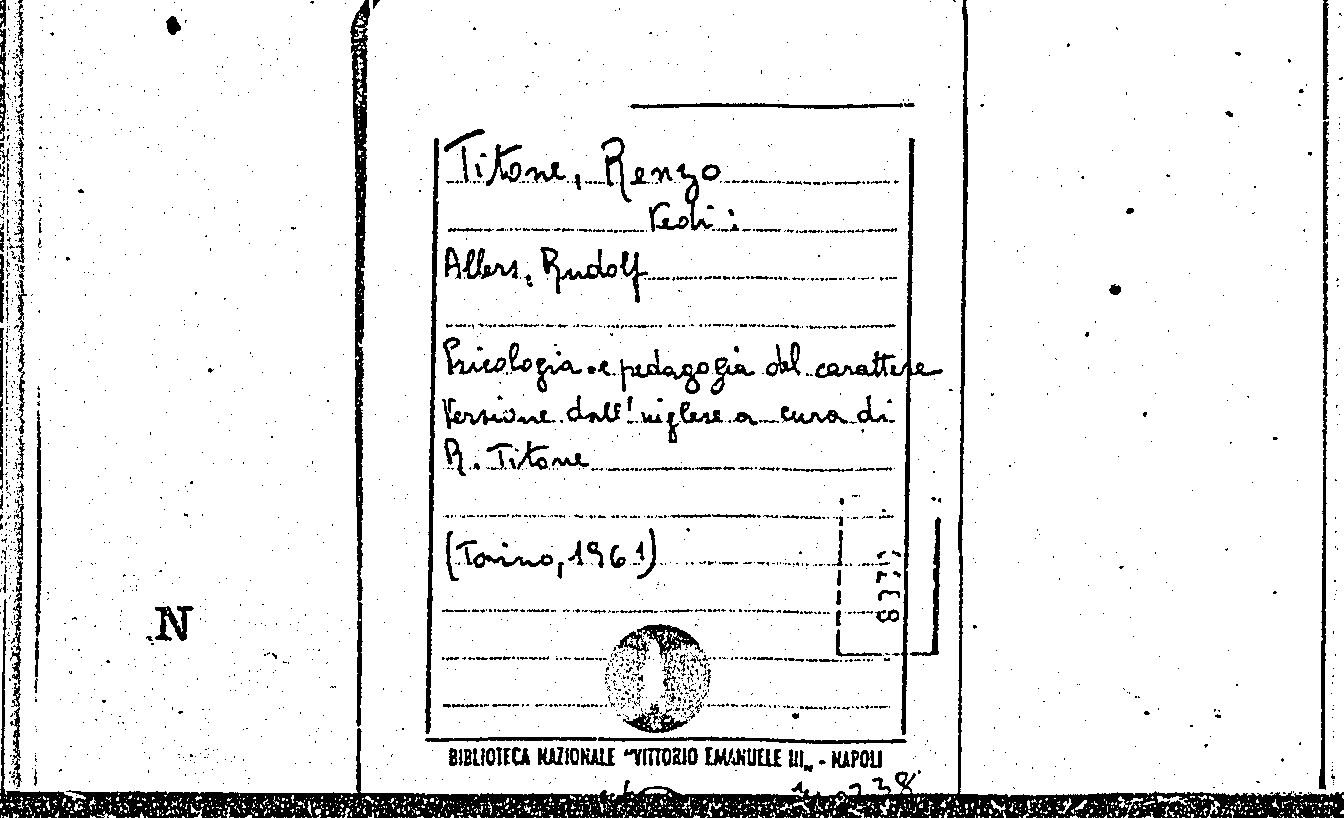 Titone, Renzo
Vedi:
Allers, Rudolf
Psicologia e pedagogia del carattere
Versione dall'inglese a cura di
R. Titone
(Torino, 1961)
N
BIBLIOTECA NAZIONALE "VITTORIO EMANUELE III" - NAPOLI